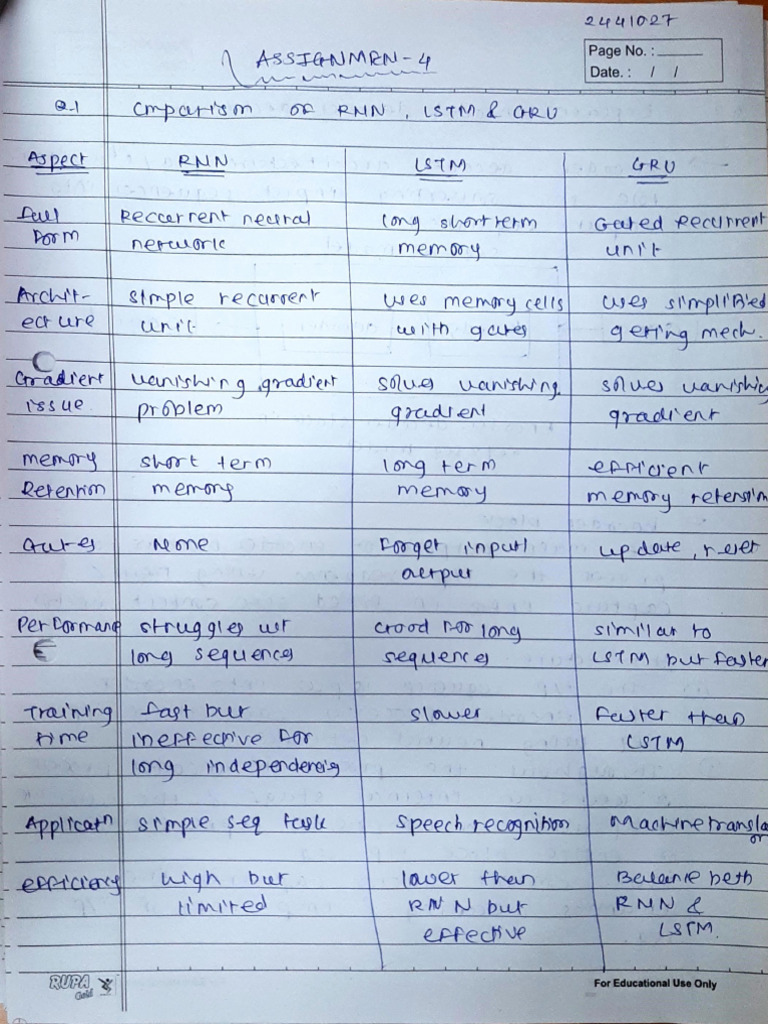 2441027
ASSIGNMRN-4
Page No. :
Date. : / /
Q.1 cmparison of RNN, LSTM & GRU
Aspect RNN LSTM GRU
Full Reccurrent neural long short term Gated Recurrent
Form network memory unit
Archit- simple recurrent uses memory cells uses simplified
ecture unit with gates gating mech.
Gradient vanishing gradient solves vanishing solves vanishing
issue problem gradient gradient
memory short term long term efficient
Retention memory memory memory retension
Gates None Forget input/ update, reset
output
Performance struggles wt Good For long similar to
long sequences sequences LSTM but faster
Training fast but slower faster than
time ineffective for LSTM
long independencies
Applicatn simple seq task speech recognition Machine translation
efficiency high but lower then Balance beth
limited RNN but RNN &
effective LSTM.
RUPA
Gold
For Educational Use Only